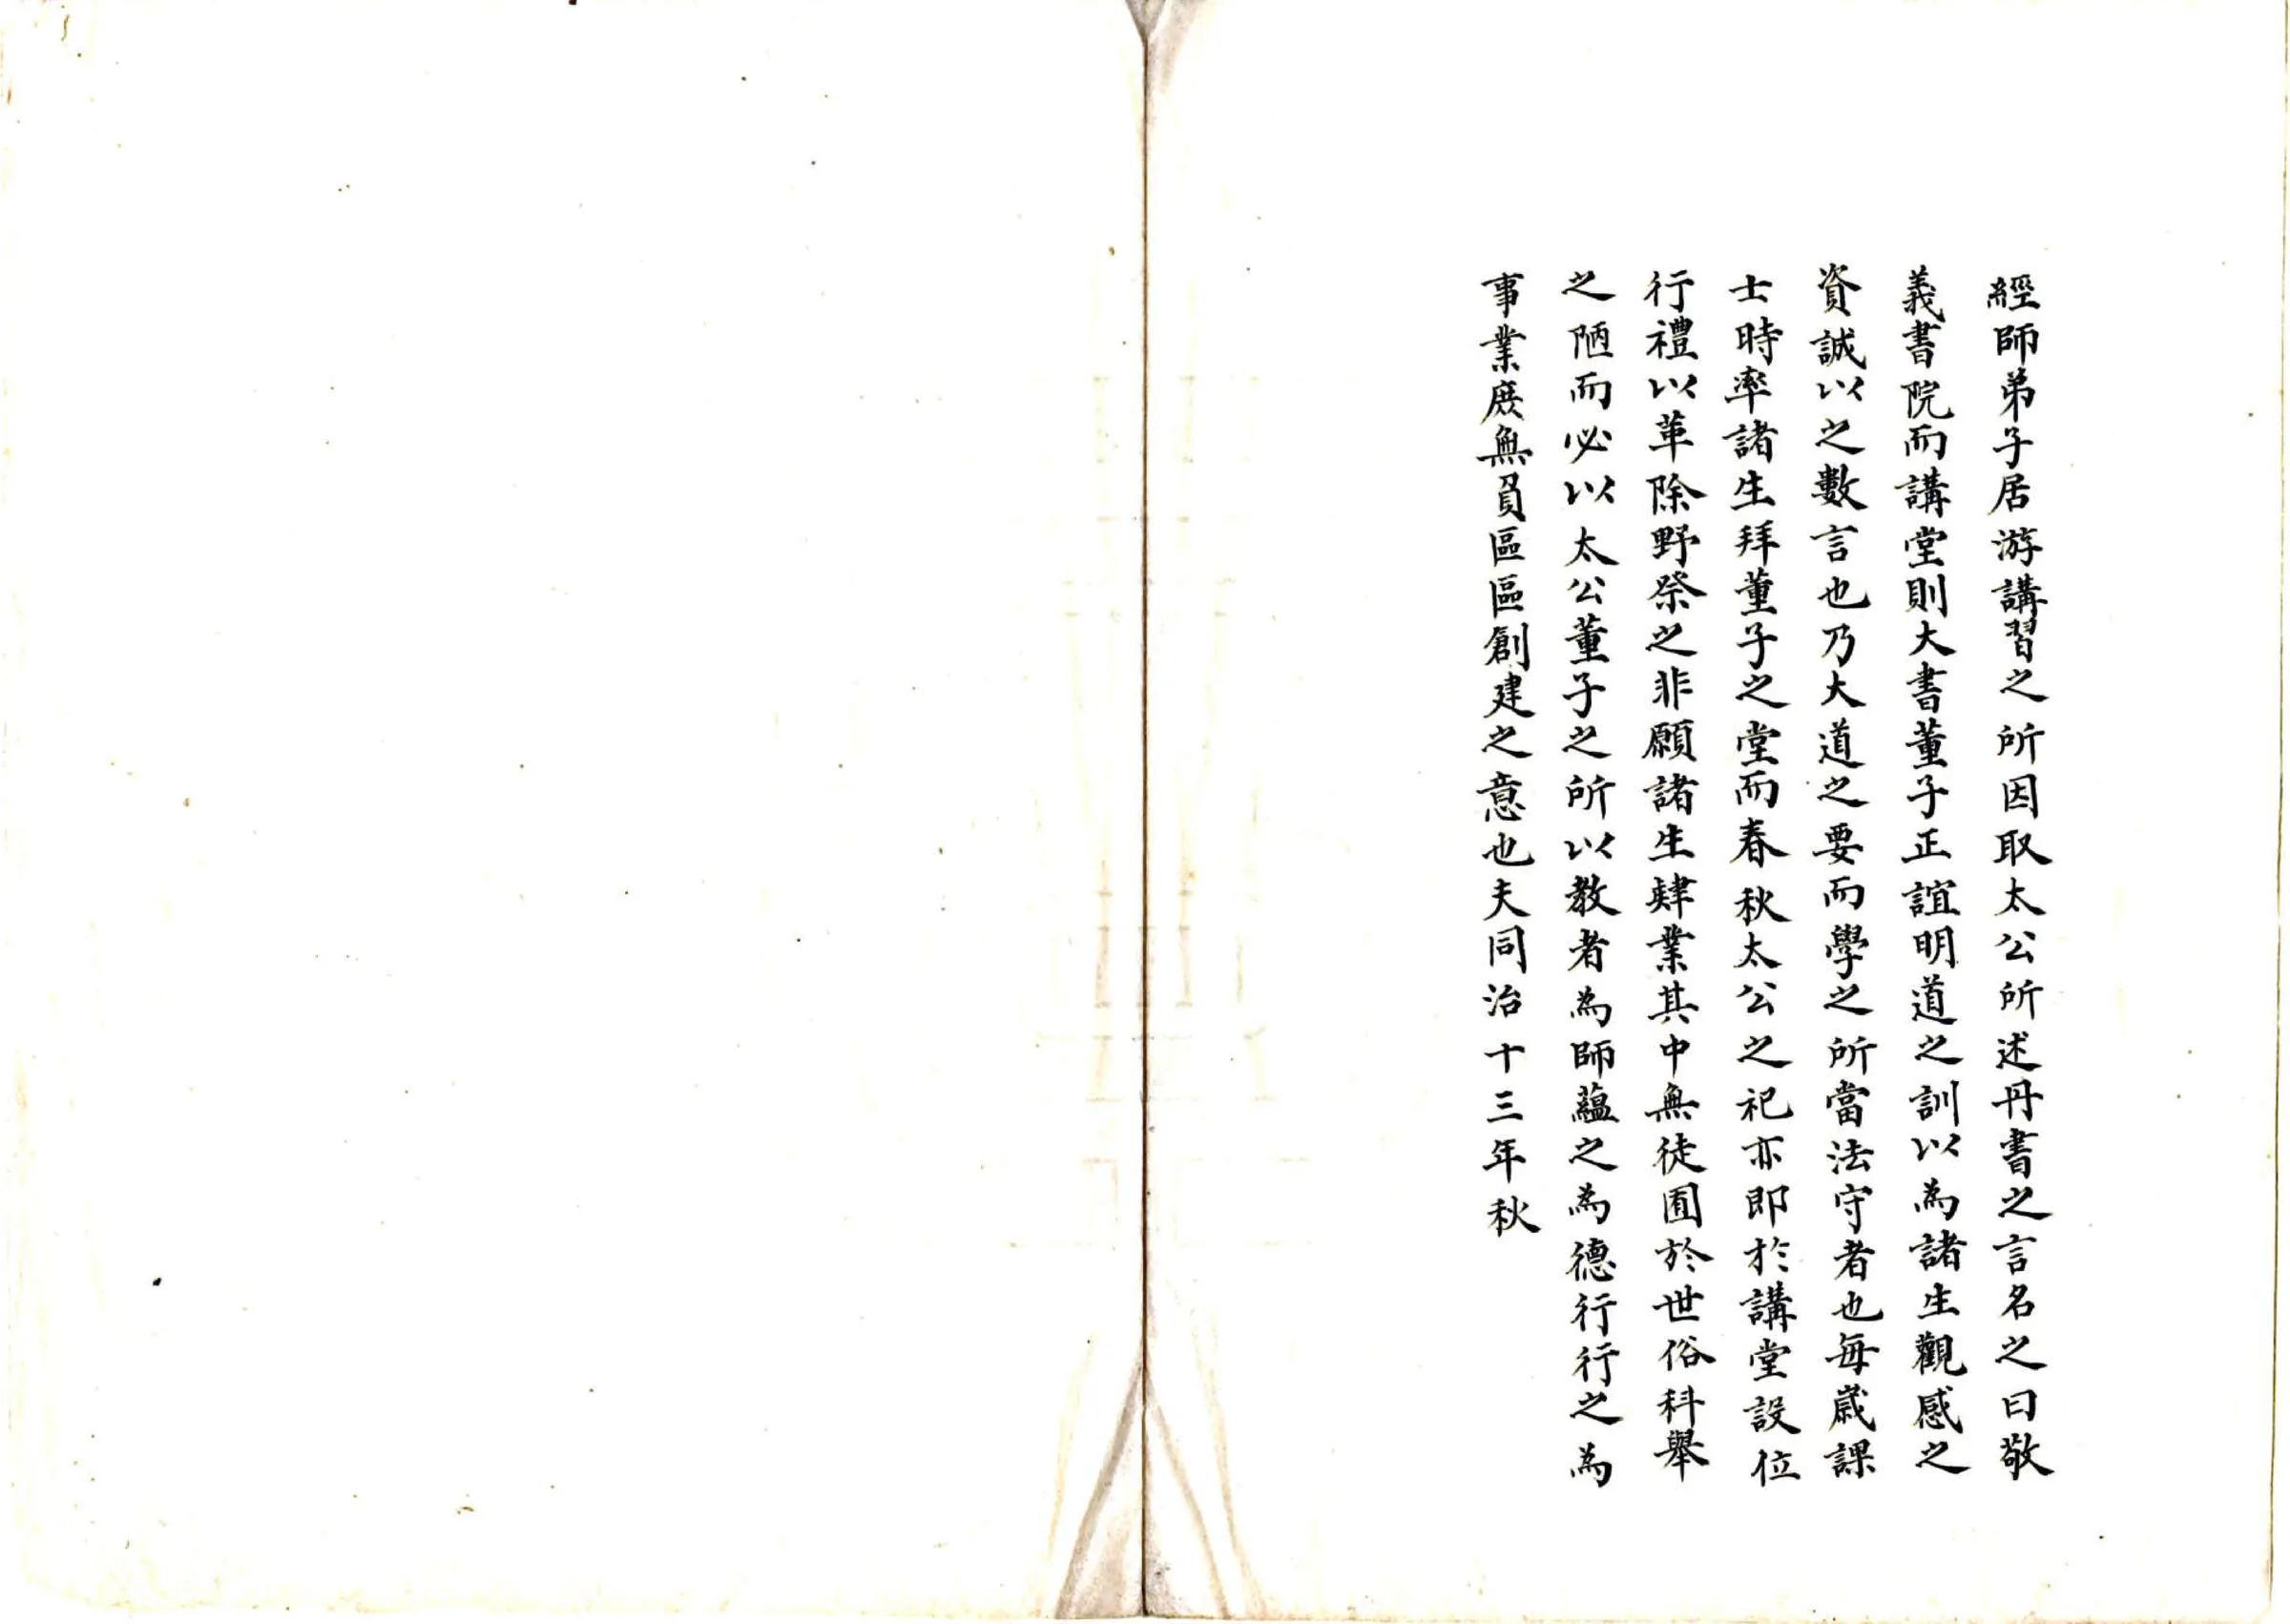 經師弟子居游講習之所因取太公所述丹書之言名之曰敬
義書院而講堂則大書董子正誼明道之訓以為諸生觀感之
資誠以之數言也乃大道之要而學之所當法守者也每歲課
士時率諸生拜董子之堂而春秋太公之祀亦即於講堂設位
行禮以革除野祭之非願諸生肄業其中無徒囿於世俗科舉
之陋而必以太公董子之所以教者為師蘊之為德行行之為
事業庶無負區區創建之意也夫同治十三年秋